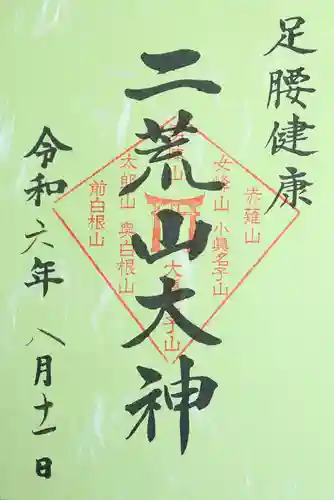 足腰健康
二荒山大神
赤薙山
女峰山
小眞名子山
太郎山
奥白根山
前白根山
令和六年 八月十一日